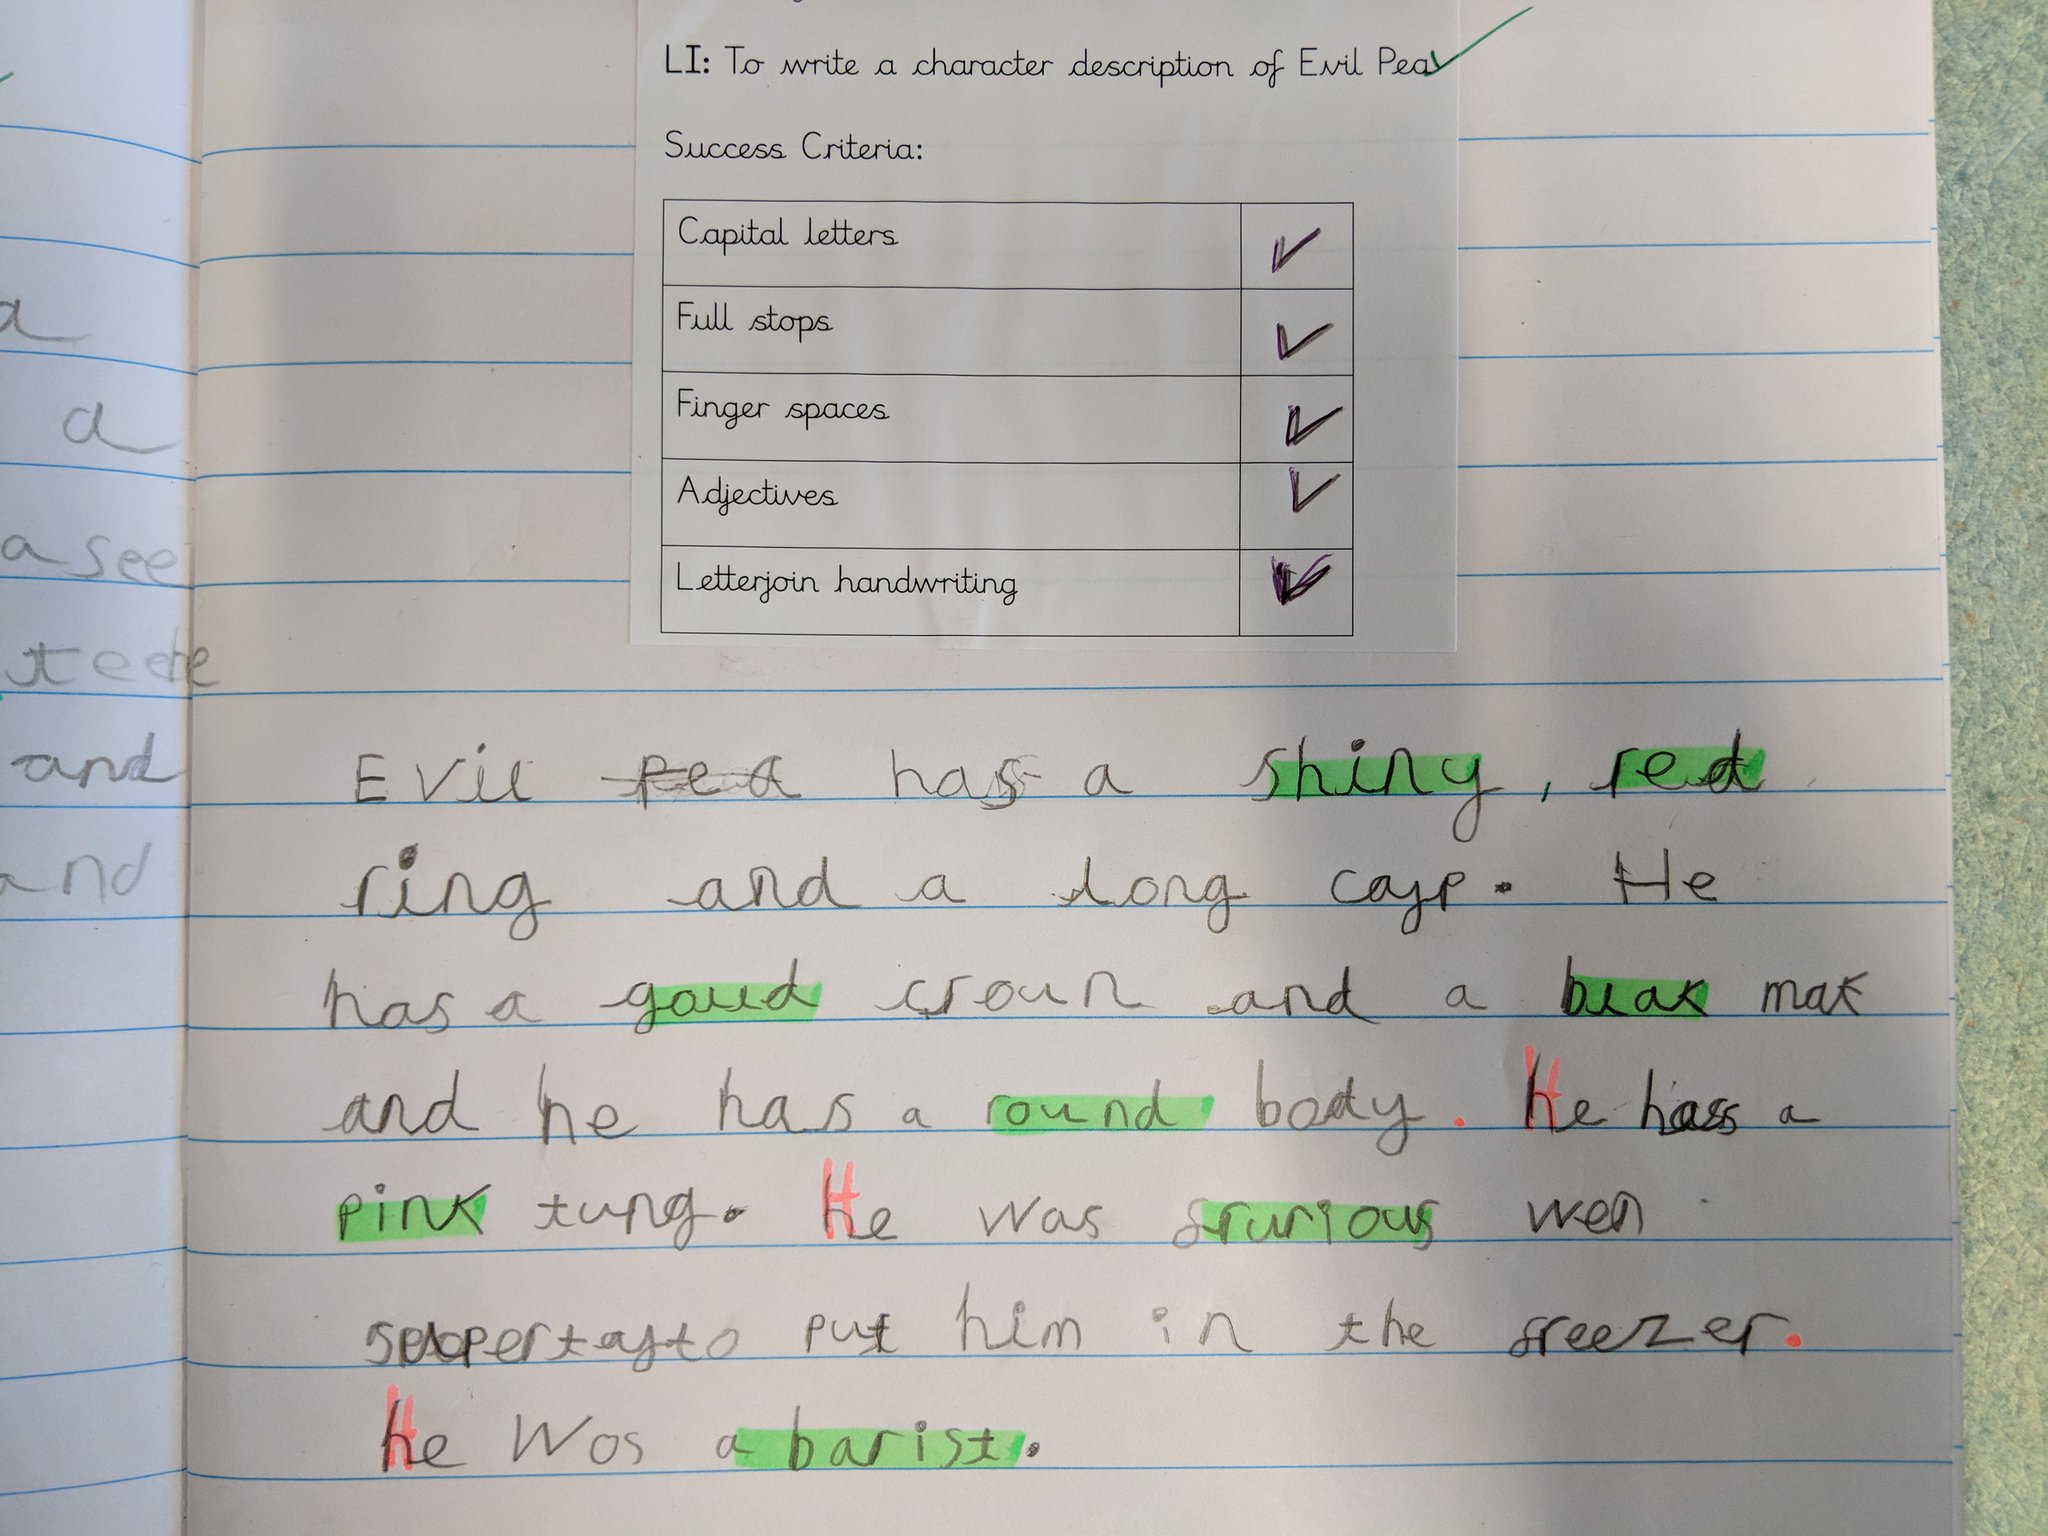 LI: To write a character description of Evil Pea
Success Criteria:
Capital letters
Full stops
Finger spaces
Adjectives
Letterjoin handwriting
a
a
a see
and
and
Evil pea has a shiny, red
ring and a long cayp. He
has a gould croun and a blak mak
and he has a round body. He has a
pink tung. He was frurious wen
put him in the freezer.
He Was a barist.